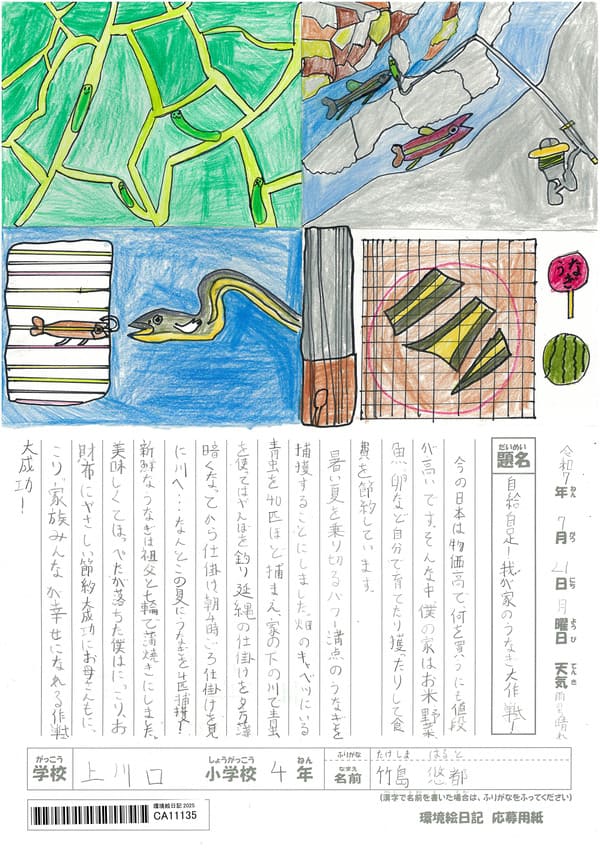 うなぎ
令和7年 7月 21日 月曜日 天気 雨のち晴れ
ねん がつ にち ようび てんき
だいめい
題名 自給自足!我が家のうなぎ大作戦!
今の日本は物価高で何を買うにも値段
が高いです。そんな中僕の家はお米野菜
魚卵など自分で育てたり獲たりして食
費を節約しています。
暑い夏を乗り切るパワー満点のうなぎを
捕獲することにしました。畑のキャベツにいる
青虫を40匹ほど捕まえ、家の下の川で青虫
を使ってはやんぼを釣り延縄の仕掛けを夕方薄
暗くなってから仕掛け、朝4時ごろ仕掛けを見
に川へ…なんとこの夏にうなぎを4匹捕獲!
新鮮なうなぎは祖父と七輪で蒲焼きにしました。
美味しくてほっぺたが落ちた僕はにっこりお
財布にやさしい節約大成功にお母さんもに
こり♪家族みんなが幸せになれる作戦
大成功!
がっこう しょうがっこう ねん ふりがな たけしま はると
学校 上川口 小学校 4年 なまえ 名前 竹島 悠都
(漢字で名前を書いた場合は、ふりがなをふってください)
環境絵日記2025
CA11135
環境絵日記 応募用紙